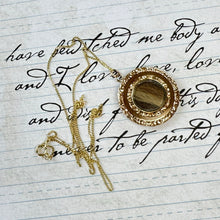 have bewitched me body a
and I love, love, love
and wish f
never to be parted f